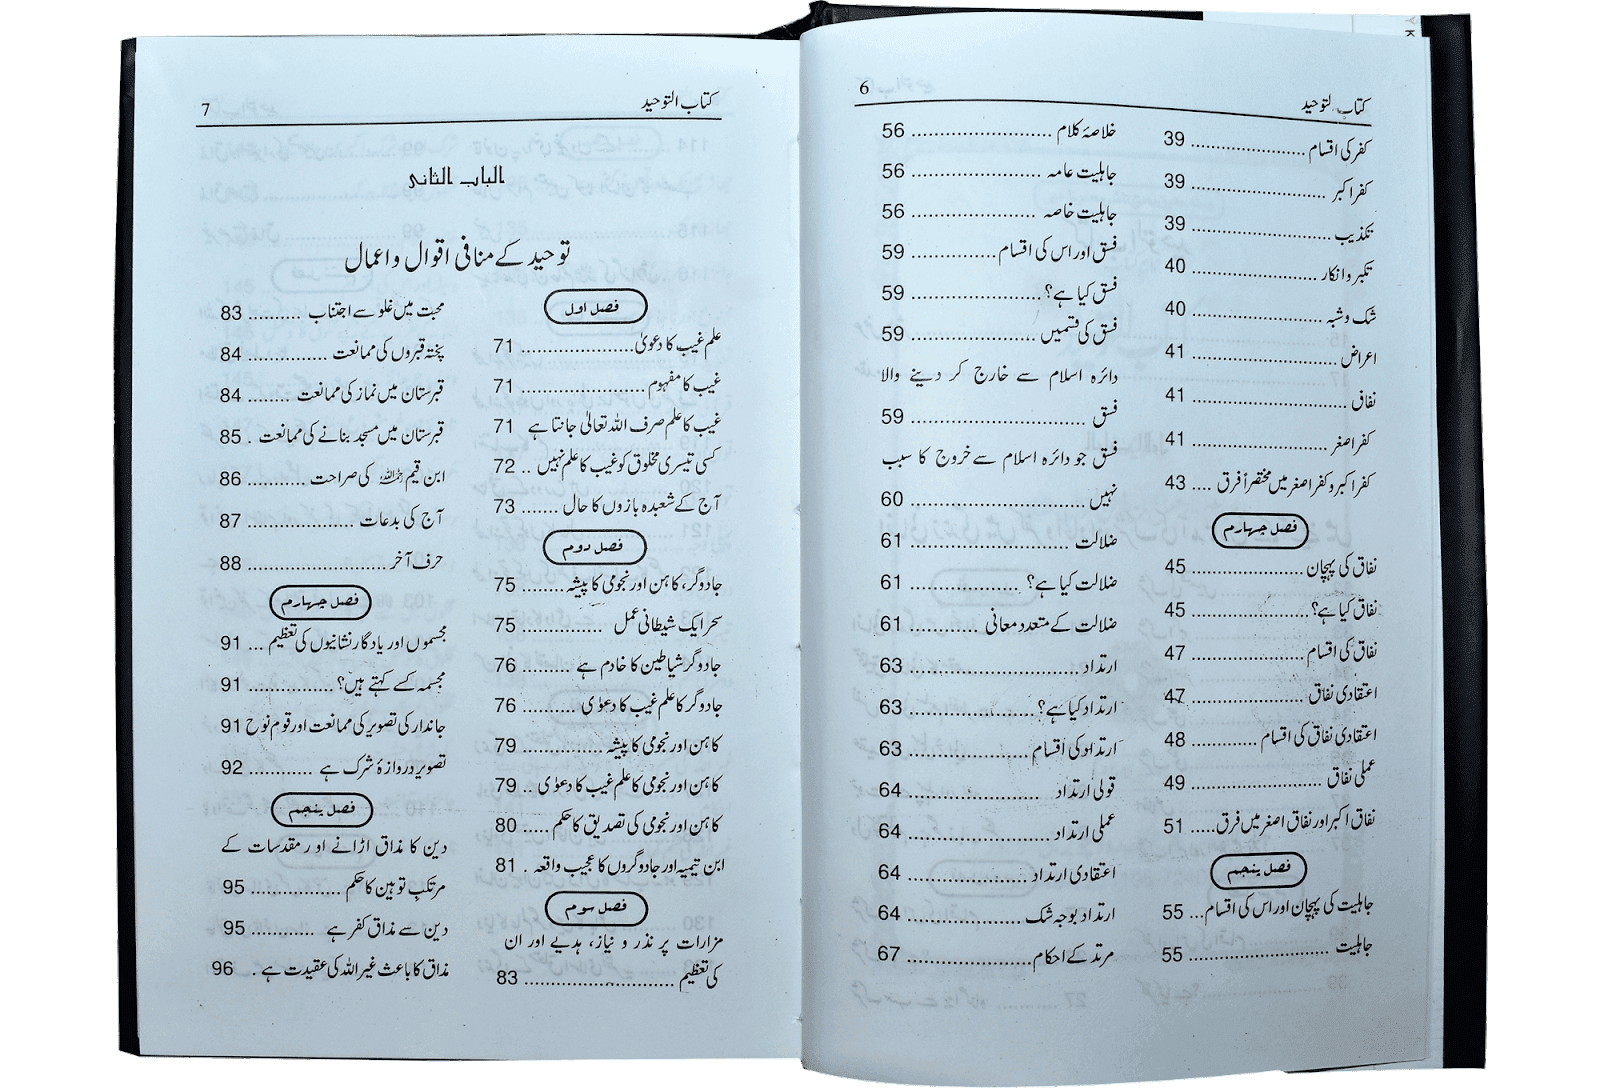 کتاب التوحید 6
کفر کی اقسام ...................... 39
کفر اکبر ...................... 39
تکذیب ...................... 39
تکبر و انکار ...................... 40
شک و شبہ ...................... 40
اعراض ...................... 41
نفاق ...................... 41
کفر اصغر ...................... 41
کفر اکبر و کفر اصغر میں مختصراً فرق .... 43
فصل چہارم
نفاق کی پہچان ...................... 45
نفاق کیا ہے؟ ...................... 45
نفاق کی اقسام ...................... 47
اعتقادی نفاق ...................... 47
اعتقادی نفاق کی اقسام ............. 48
عملی نفاق ...................... 49
نفاق اکبر اور نفاق اصغر میں فرق ..... 51
فصل پنجم
جاہلیت کی پہچان اور اس کی اقسام ... 55
جاہلیت ...................... 55
خلاصۂ کلام ...................... 56
جاہلیت عامہ ...................... 56
جاہلیت خاصہ ...................... 56
فسق اور اس کی اقسام ............... 59
فسق کیا ہے؟ ...................... 59
فسق کی قسمیں ...................... 59
دائرہ اسلام سے خارج کر دینے والا
فسق ...................... 59
فسق جو دائرہ اسلام سے خروج کا سبب
نہیں ...................... 60
ضلالت ...................... 61
ضلالت کیا ہے؟ ...................... 61
ضلالت کے متعدد معانی ............ 61
ارتداد ...................... 63
ارتداد کیا ہے؟ ...................... 63
ارتداد کی اقسام ...................... 63
قولی ارتداد ...................... 64
عملی ارتداد ...................... 64
اعتقادی ارتداد ...................... 64
ارتداد بوجہ شک ...................... 64
مرتد کے احکام ...................... 67
کتاب التوحید 7
الباب الثانی
توحید کے منافی اقوال و اعمال
فصل اول
علم غیب کا دعویٰ ...................... 71
غیب کا مفہوم ...................... 71
غیب کا علم صرف اللہ تعالیٰ جانتا ہے 71
کسی تیسری مخلوق کو غیب کا علم نہیں .. 72
آج کے شعبدہ بازوں کا حال ....... 73
فصل دوم
جادوگر، کاہن اور نجومی کا پیشہ ....... 75
سحر ایک شیطانی عمل ............... 75
جادوگر شیاطین کا خادم ہے .......... 76
جادوگر کا علم غیب کا دعوٰی .......... 76
کاہن اور نجومی کا پیشہ ............... 79
کاہن اور نجومی کا علم غیب کا دعوٰی .. 79
کاہن اور نجومی کی تصدیق کا حکم ..... 80
ابن تیمیہ اور جادوگروں کا عجیب واقعہ . 81
فصل سوم
مزارات پر نذر و نیاز، ہدیے اور ان
کی تعظیم ...................... 83
محبت میں غلو سے اجتناب .......... 83
پختہ قبروں کی ممانعت ............... 84
قبرستان میں نماز کی ممانعت ........ 84
قبرستان میں مسجد بنانے کی ممانعت . 85
ابن قیم رحمہ اللہ کی صراحت .......... 86
آج کی بدعات ...................... 87
حرف آخر ...................... 88
فصل چہارم
مجسموں اور یادگار نشانیوں کی تعظیم ... 91
مجسمہ کسے کہتے ہیں؟ ............... 91
جاندار کی تصویر کی ممانعت اور قوم نوح 91
تصویر دروازۂ شرک ہے ............ 92
فصل پنجم
دین کا مذاق اڑانے اور مقدسات کے
مرتکبِ توہین کا حکم ............... 95
دین سے مذاق کفر ہے ............ 95
مذاق کا باعث غیر اللہ کی عقیدت ہے . 96